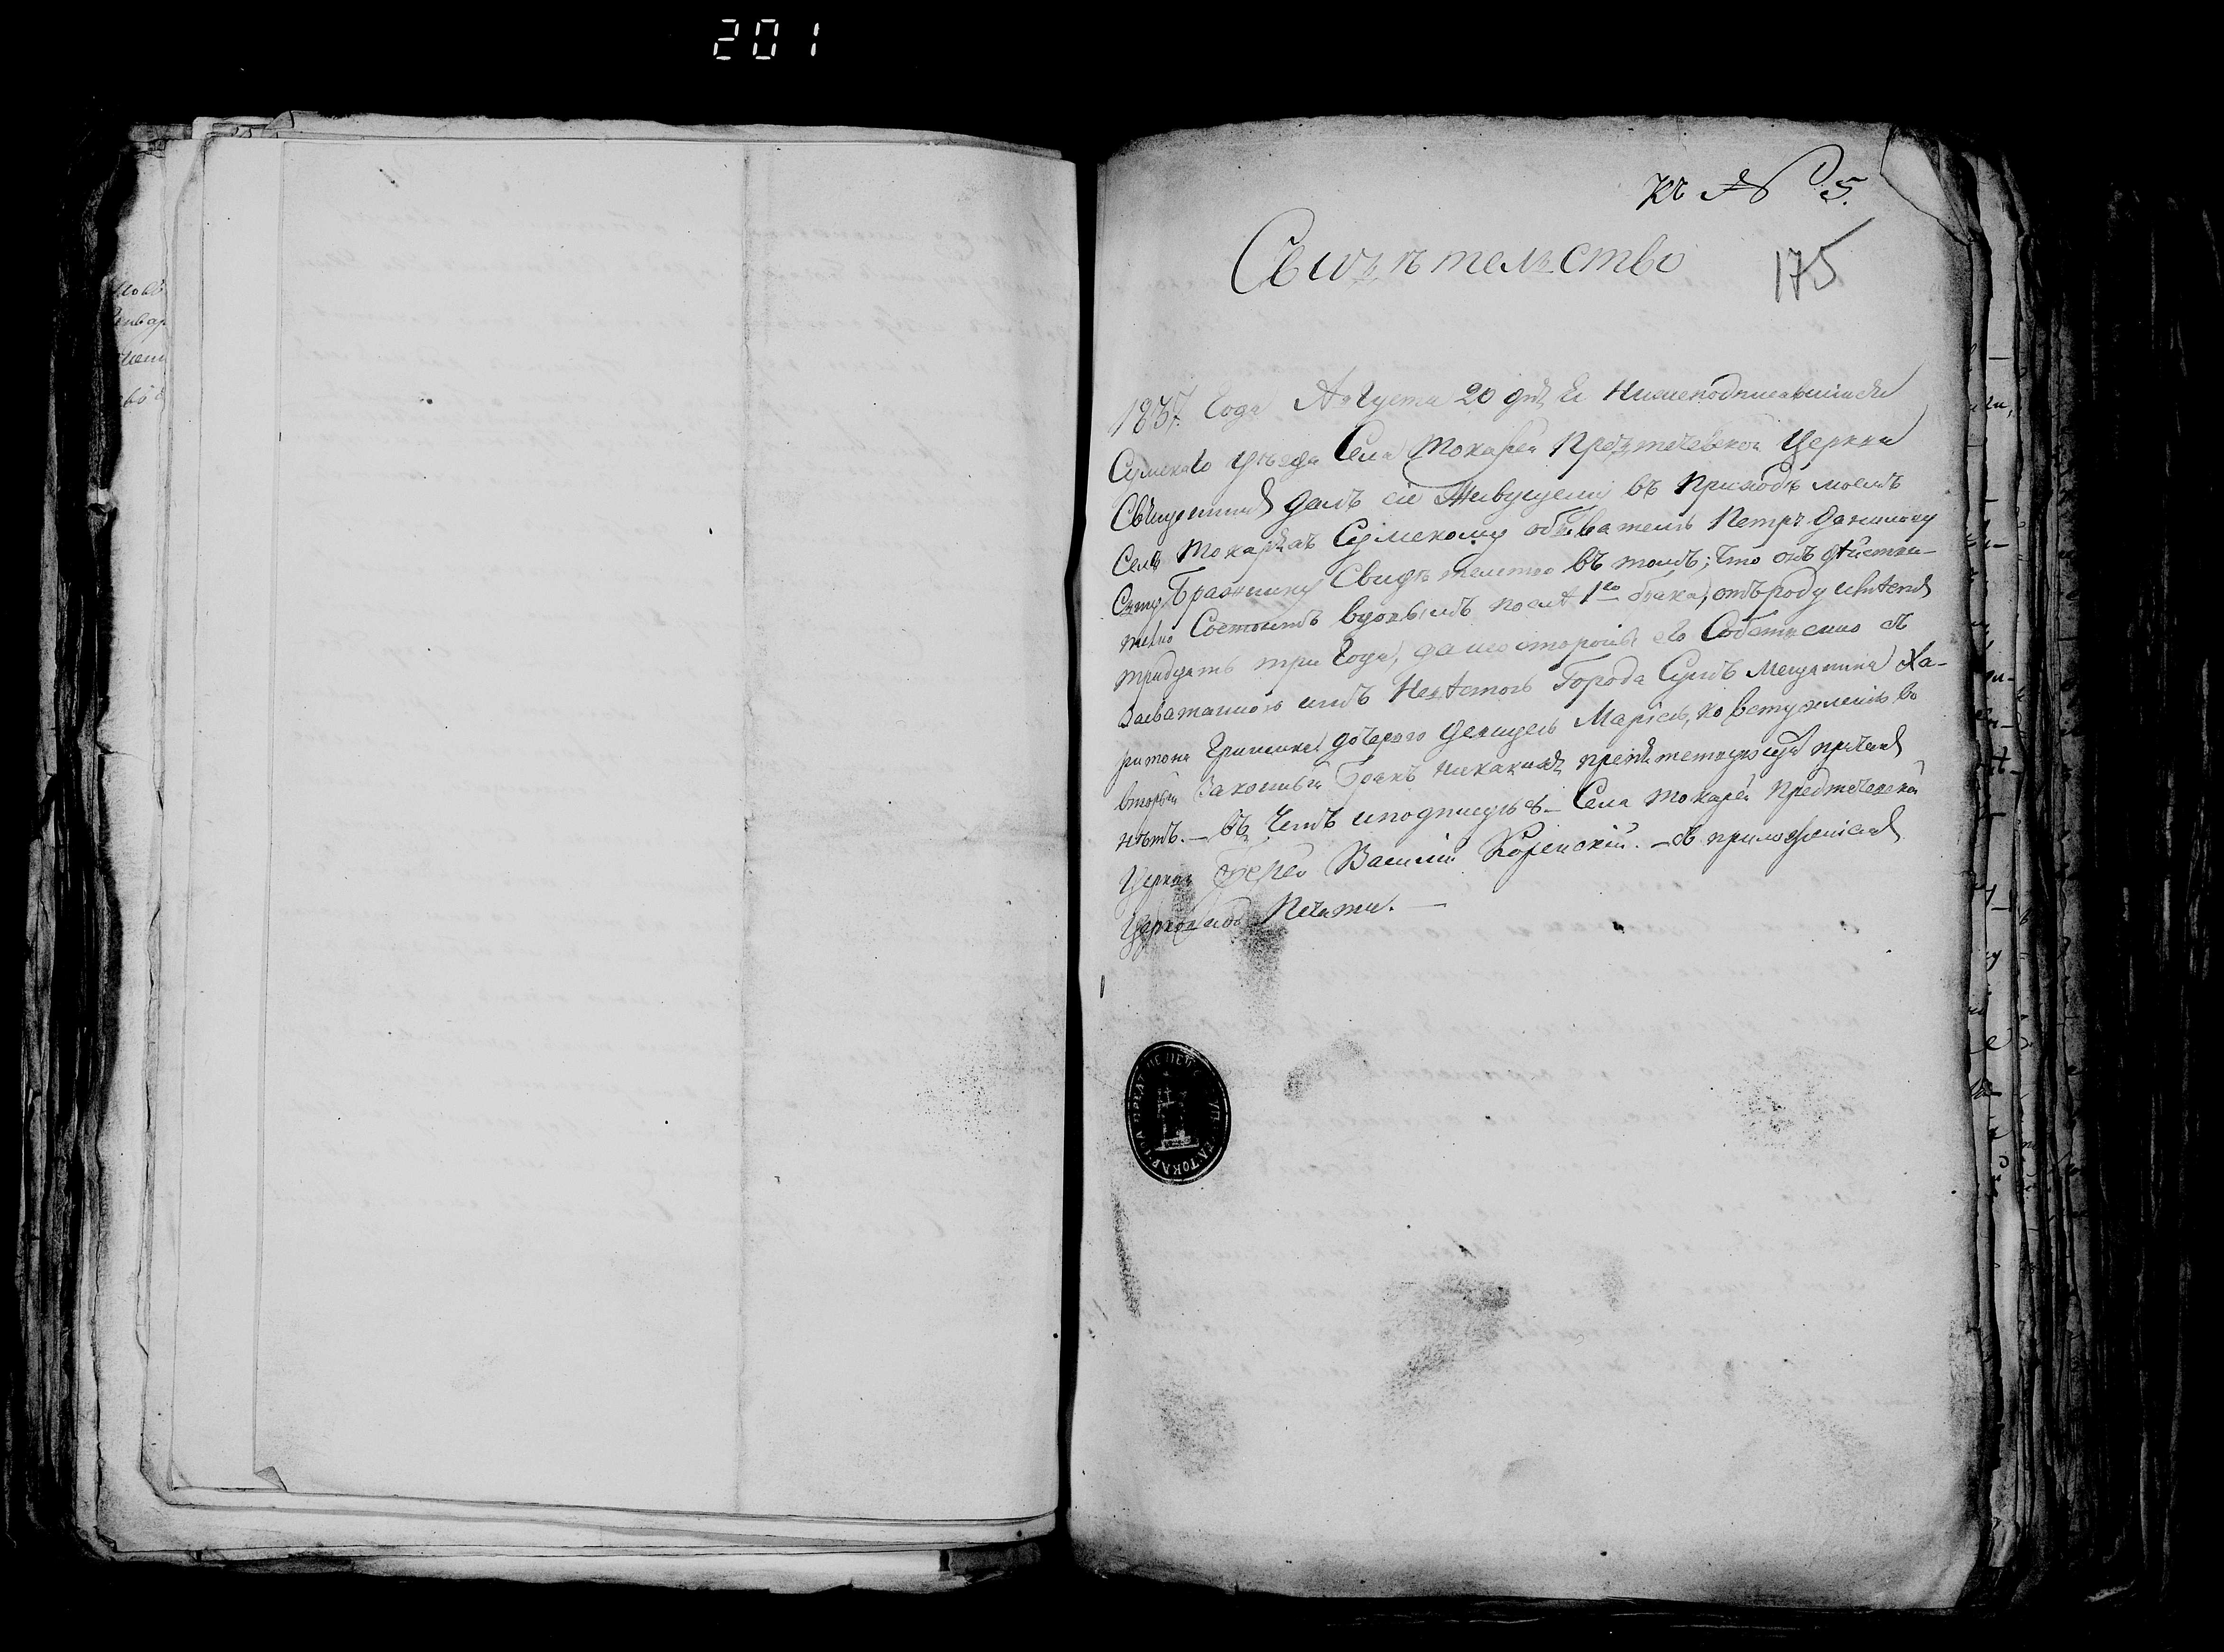 201
къ № 5.
175
Свидѣтельство
1837. Года Августа 20 дня Я Нижеподписавшийся
Сумскаго уѣзда Села Токарей Предтечевской Церкви
Священникъ далъ сіе Живущему въ Приходѣ моемъ
Селѣ Токаряхъ Сумскому обывателю Петру Данилову
Сыну Бражнику Свидѣтелство въ томъ; Что онъ дѣистви-
телно Состоитъ вдовымъ послѣ 1го брака, отъ роду имѣетъ
тридцать три Года, да по сторонѣ его Собственно съ
Засватанною имъ Невѣстою Города Сумъ Мещанина Ха-
ритона Гриценка дочерью девицею Маріею, ко вступленію во
вторый Законный Бракъ никакихъ препятствующихъ причинъ
нѣтъ. — Въ Чемъ и подпишусь — Села Токарей Предтечевской
Церкви Іерей Василій — съ приложеніемъ
Церковной Печати. —